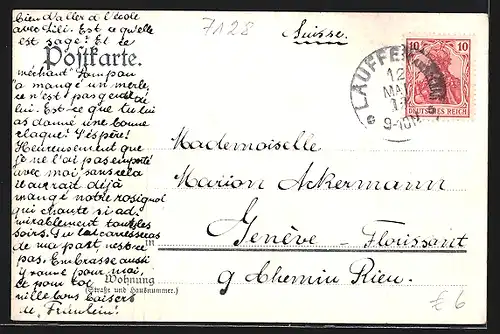 7128
Suisse.
bien d'aller à l'école
avec Lili. Est ce qu'elle
est sage? Et ce
Postkarte.
"méchant" Pompon
a mangé un merle,
ce n'est pas gentil de
lui. Est-ce que tu lui
as donné une bonne
claque? J'espère!
Heureusement que
je ne l'ai pas emporté
avec moi, sans cela
il aurait déjà
mangé notre rossignol
qui chante si ad-
mirablement tous les
soirs. Tu le caresseras
de ma part n'est-ce
pas. Embrasse aussi
Yvonne pour moi,
et pour toi
mille bons baisers
de "Fräulein"
LAUFFE
12
MAI
11
9-10N
10 10
DEUTSCHES REICH
Mademoiselle
Marion Ackermann
in Genève - Florissant
9 Chemin Rieu.
Wohnung
(Straße und Hausnummer.)
£ 6